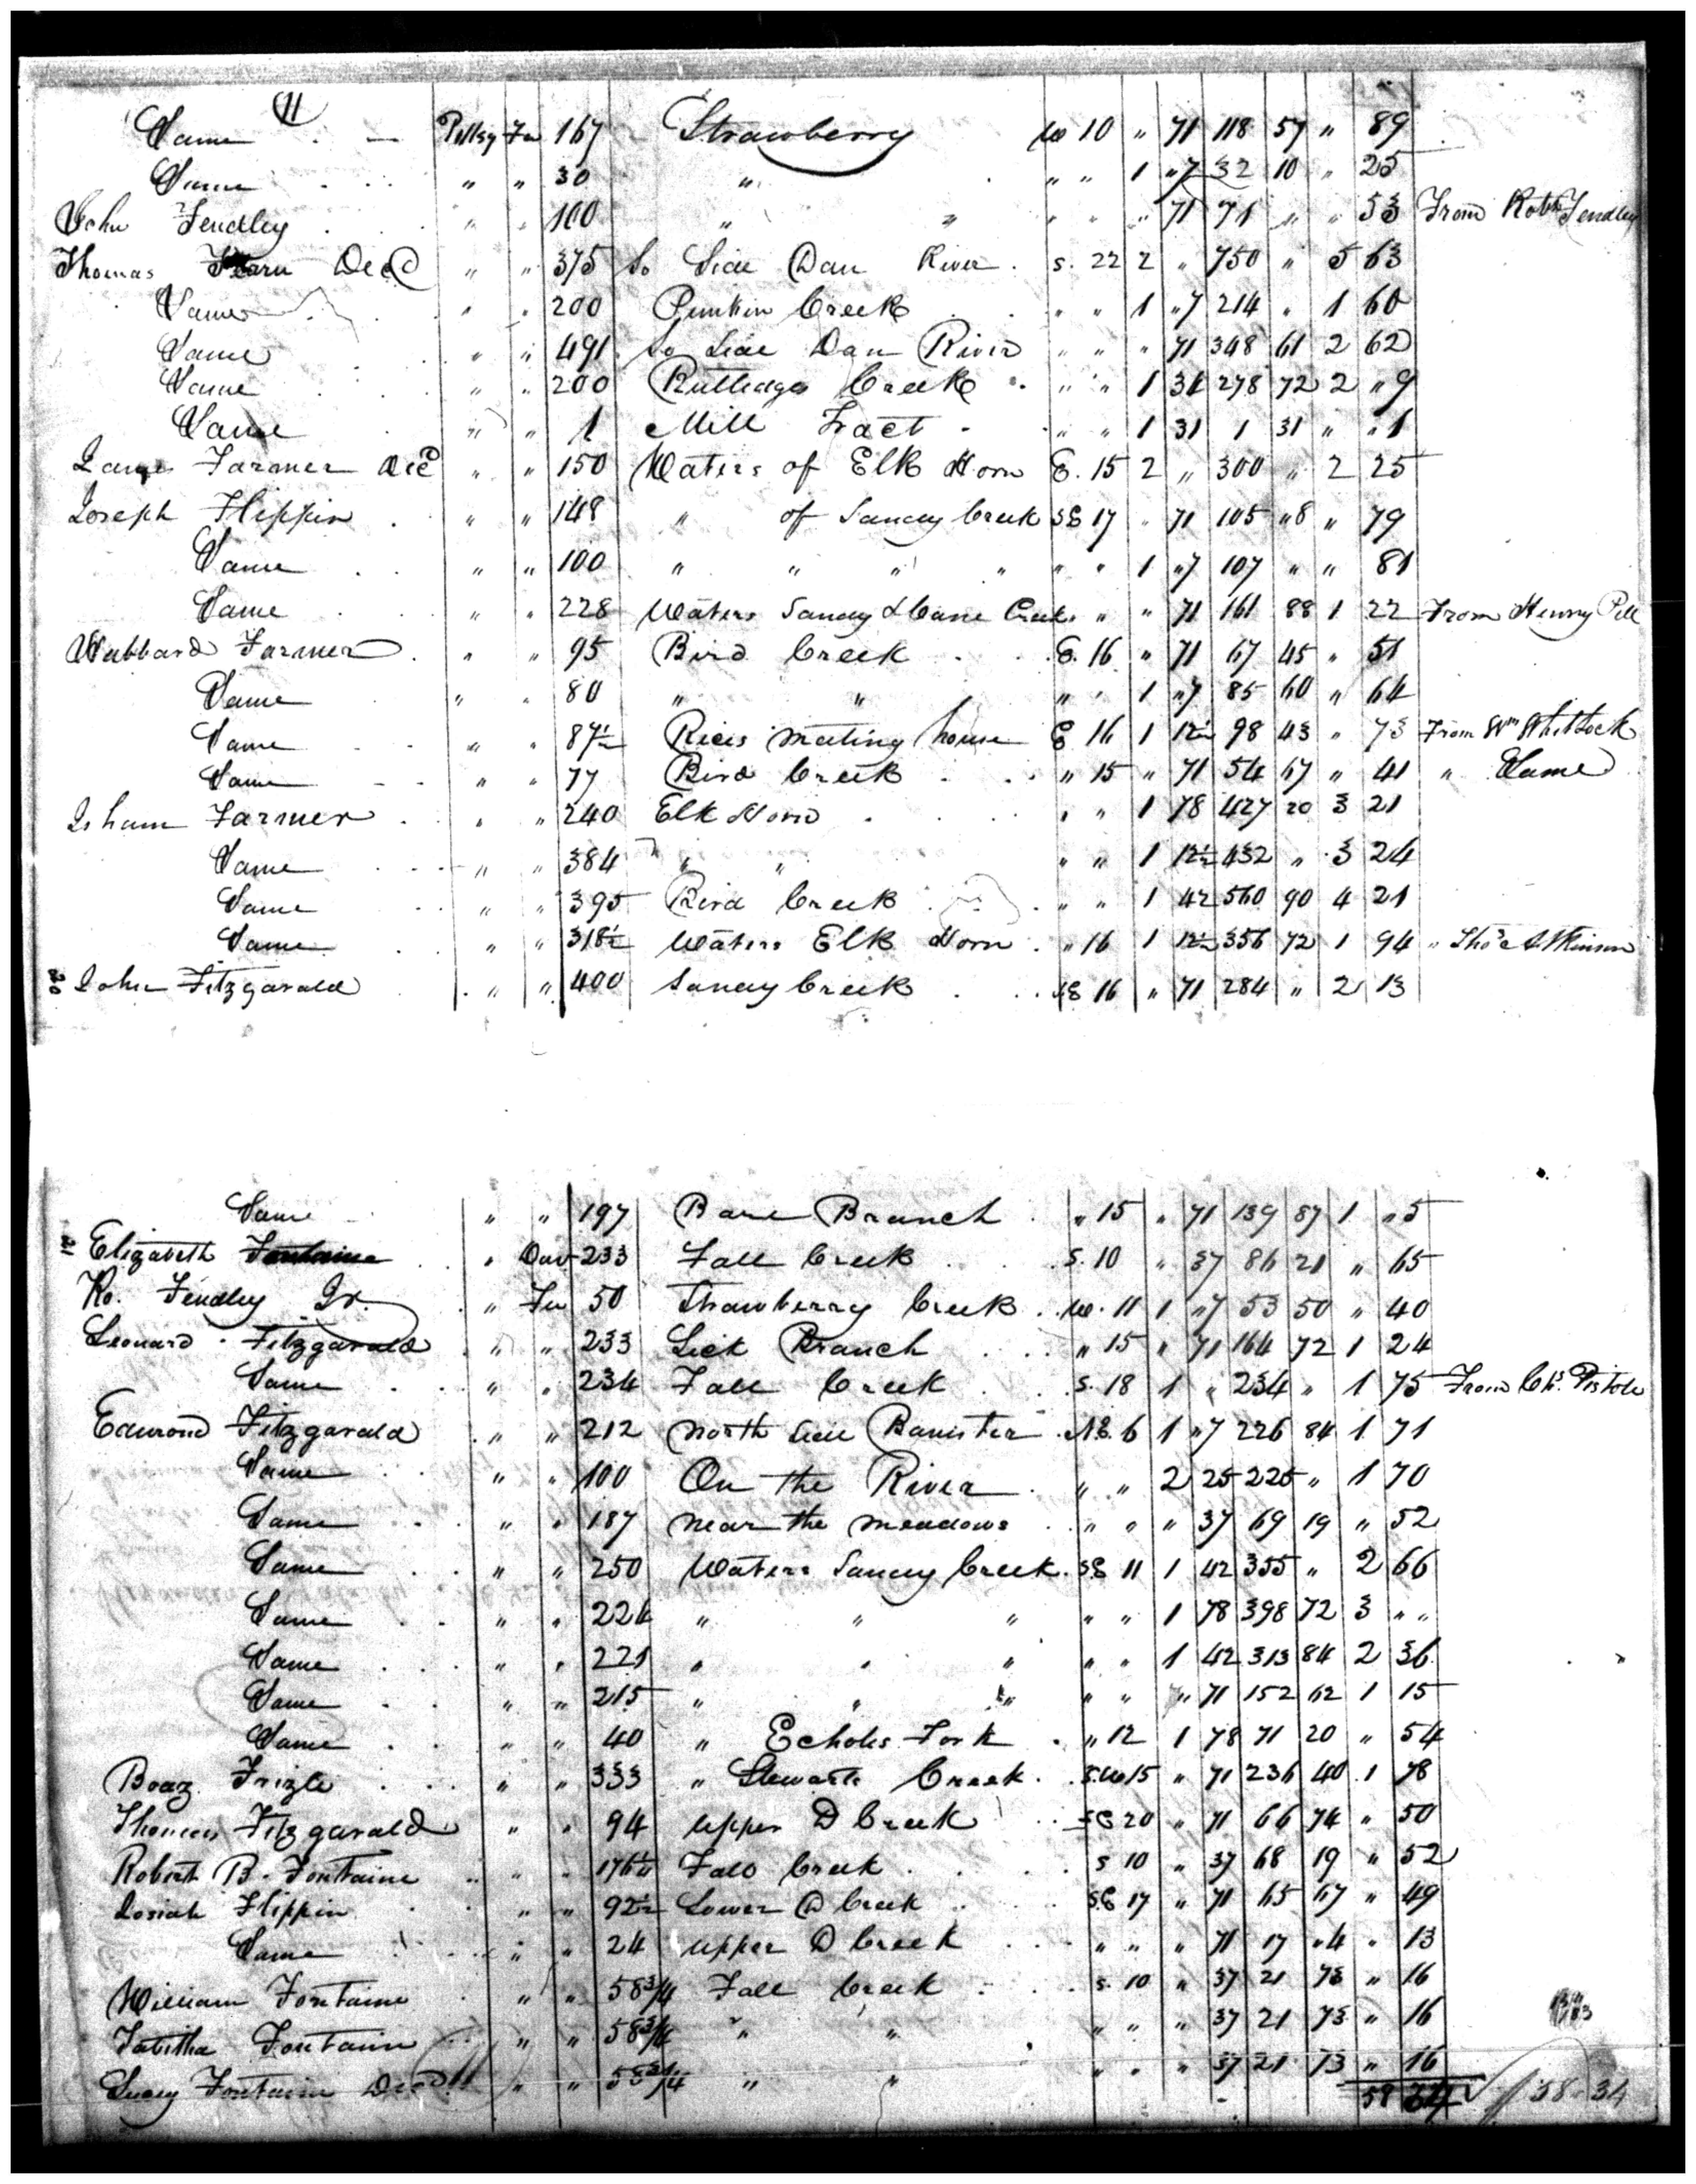 11
Same Pittsy Fee 167 Strawberry W 10 " 71 118 57 " 89
Same " " 30 " " " 1 "7 32 10 " 25
John Fendley " " 100 " " " " " 71 71 " " 53 From Robt Fendley
Thomas Fearn Decd " " 375 So Side Dan River S. 22 2 " 750 " 5 63
Same " " 200 Punkin Creek " " 1 "7 214 " 1 60
Same " " 491 So Side Dan River " " " 71 348 61 2 62
Same " " 200 Rutledges Creek " " 1 31 278 72 2 "9
Same " " 1 Mill Tract " " 1 31 1 31 " "1
Farmer Decd " " 150 Waters of Elk Horn E. 15 2 " 300 " 2 25
Joseph Flippin " " 148 " of Sandy Creek SE 17 " 71 105 "8 " 79
Same " " 100 " " " " " " 1 "7 107 " " 81
Same " " 228 Waters Sandy & Cane Creek " " " 71 161 88 1 22 From Henry Pell
Hubbard Farmer " " 95 Bird Creek E. 16 " 71 67 45 " 51
Same " " 80 " " " " 1 "7 85 60 " 64
Same " " 87½ Rices meeting house E 16 1 12½ 98 43 " 73 From Wm Whitlock
Same " " 77 Bird Creek " 15 " 71 54 67 " 41 " Same
Isham Farmer " " 240 Elk Horn " " 1 78 427 20 3 21
Same " " 384 " " " " 1 12½ 432 " 3 24
Same " " 395 Bird Creek " " 1 42 560 90 4 21
Same " " 318½ Waters Elk Horn " 16 1 12½ 356 72 1 94 " Thos Atkinson
20 John Fitzgarald " " 400 Sandy Creek SE 16 " 71 284 " 2 13
Same " " 197 Bare Branch " 15 " 71 139 87 1 "5
21 Elizabeth Fontaine " Dav 233 Fall Creek S. 10 " 37 86 21 " 65
Ro. Fendley Jr. " Fee 50 Strawberry Creek W. 11 1 "7 53 50 " 40
Leonard Fitzgarald " " 233 Lick Branch " 15 " 71 164 72 1 24
Same " " 234 Fall Creek S. 18 1 " 234 " 1 75 From Chs. Pistole
Edmond Fitzgarald " " 212 North side Banister NE. 6 1 "7 226 84 1 71
Same " " 100 On the River " " 2 25 225 " 1 70
Same " " 187 near the meadows " " " 37 69 19 " 52
Same " " 250 Waters Sandy Creek SE 11 1 42 355 " 2 66
Same " " 224 " " " " " 1 78 398 72 3 " "
Same " " 221 " " " " " 1 42 313 84 2 36
Same " " 215 " " " " " " 71 152 62 1 15
Same " " 40 " Echols Fork " 12 1 78 71 20 " 54
Boaz Frizle " " 333 " Stewarts Creek S.W 15 " 71 236 40 1 78
Thomas Fitzgarald " " 94 upper D Creek SE 20 " 71 66 74 " 50
Robert B. Fontaine " " Fall Creek S 10 " 37 68 19 " 52
Josiah Flippin " " 92½ Lower D Creek SE 17 " 71 65 67 " 49
Same " " 24 upper D Creek " " " 71 17 "4 " 13
William Fontaine " " 58¾ Fall Creek S. 10 " 37 21 73 " 16
Tabitha Fontaine " " 58¾ " " " " " 37 21 73 " 16
Fontaine Decd " " 58¾ " " " " " 37 21 73 " 16
58 34 58 34